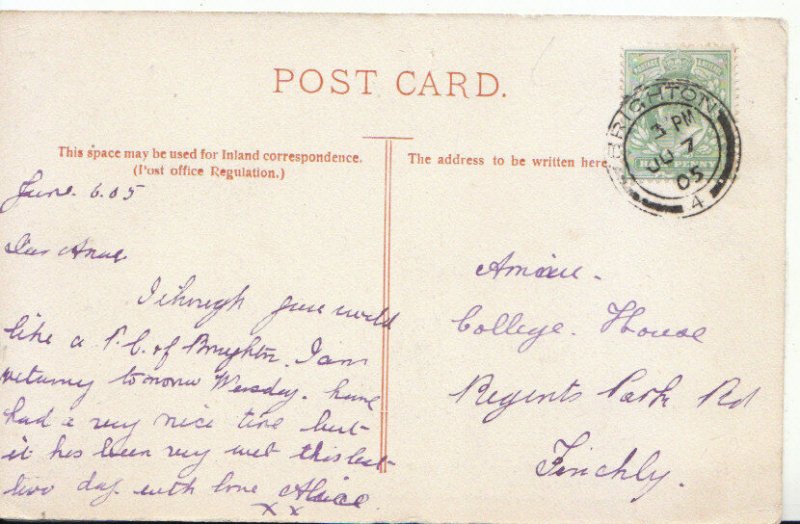 POST CARD.
This space may be used for Inland correspondence.
(Post office Regulation.)
The address to be written here.
BRIGHTON
3 PM
JU 7
05
4
HALF PENNY
June. 6.05
Dear
I though you would
like a P.C. of Brighton. I am
returning tomorrow Wensday. have
had a very nice time but
it has been very wet this last
two day. with love Alice
x x
College. House
Regents Park Rd
Finchly.